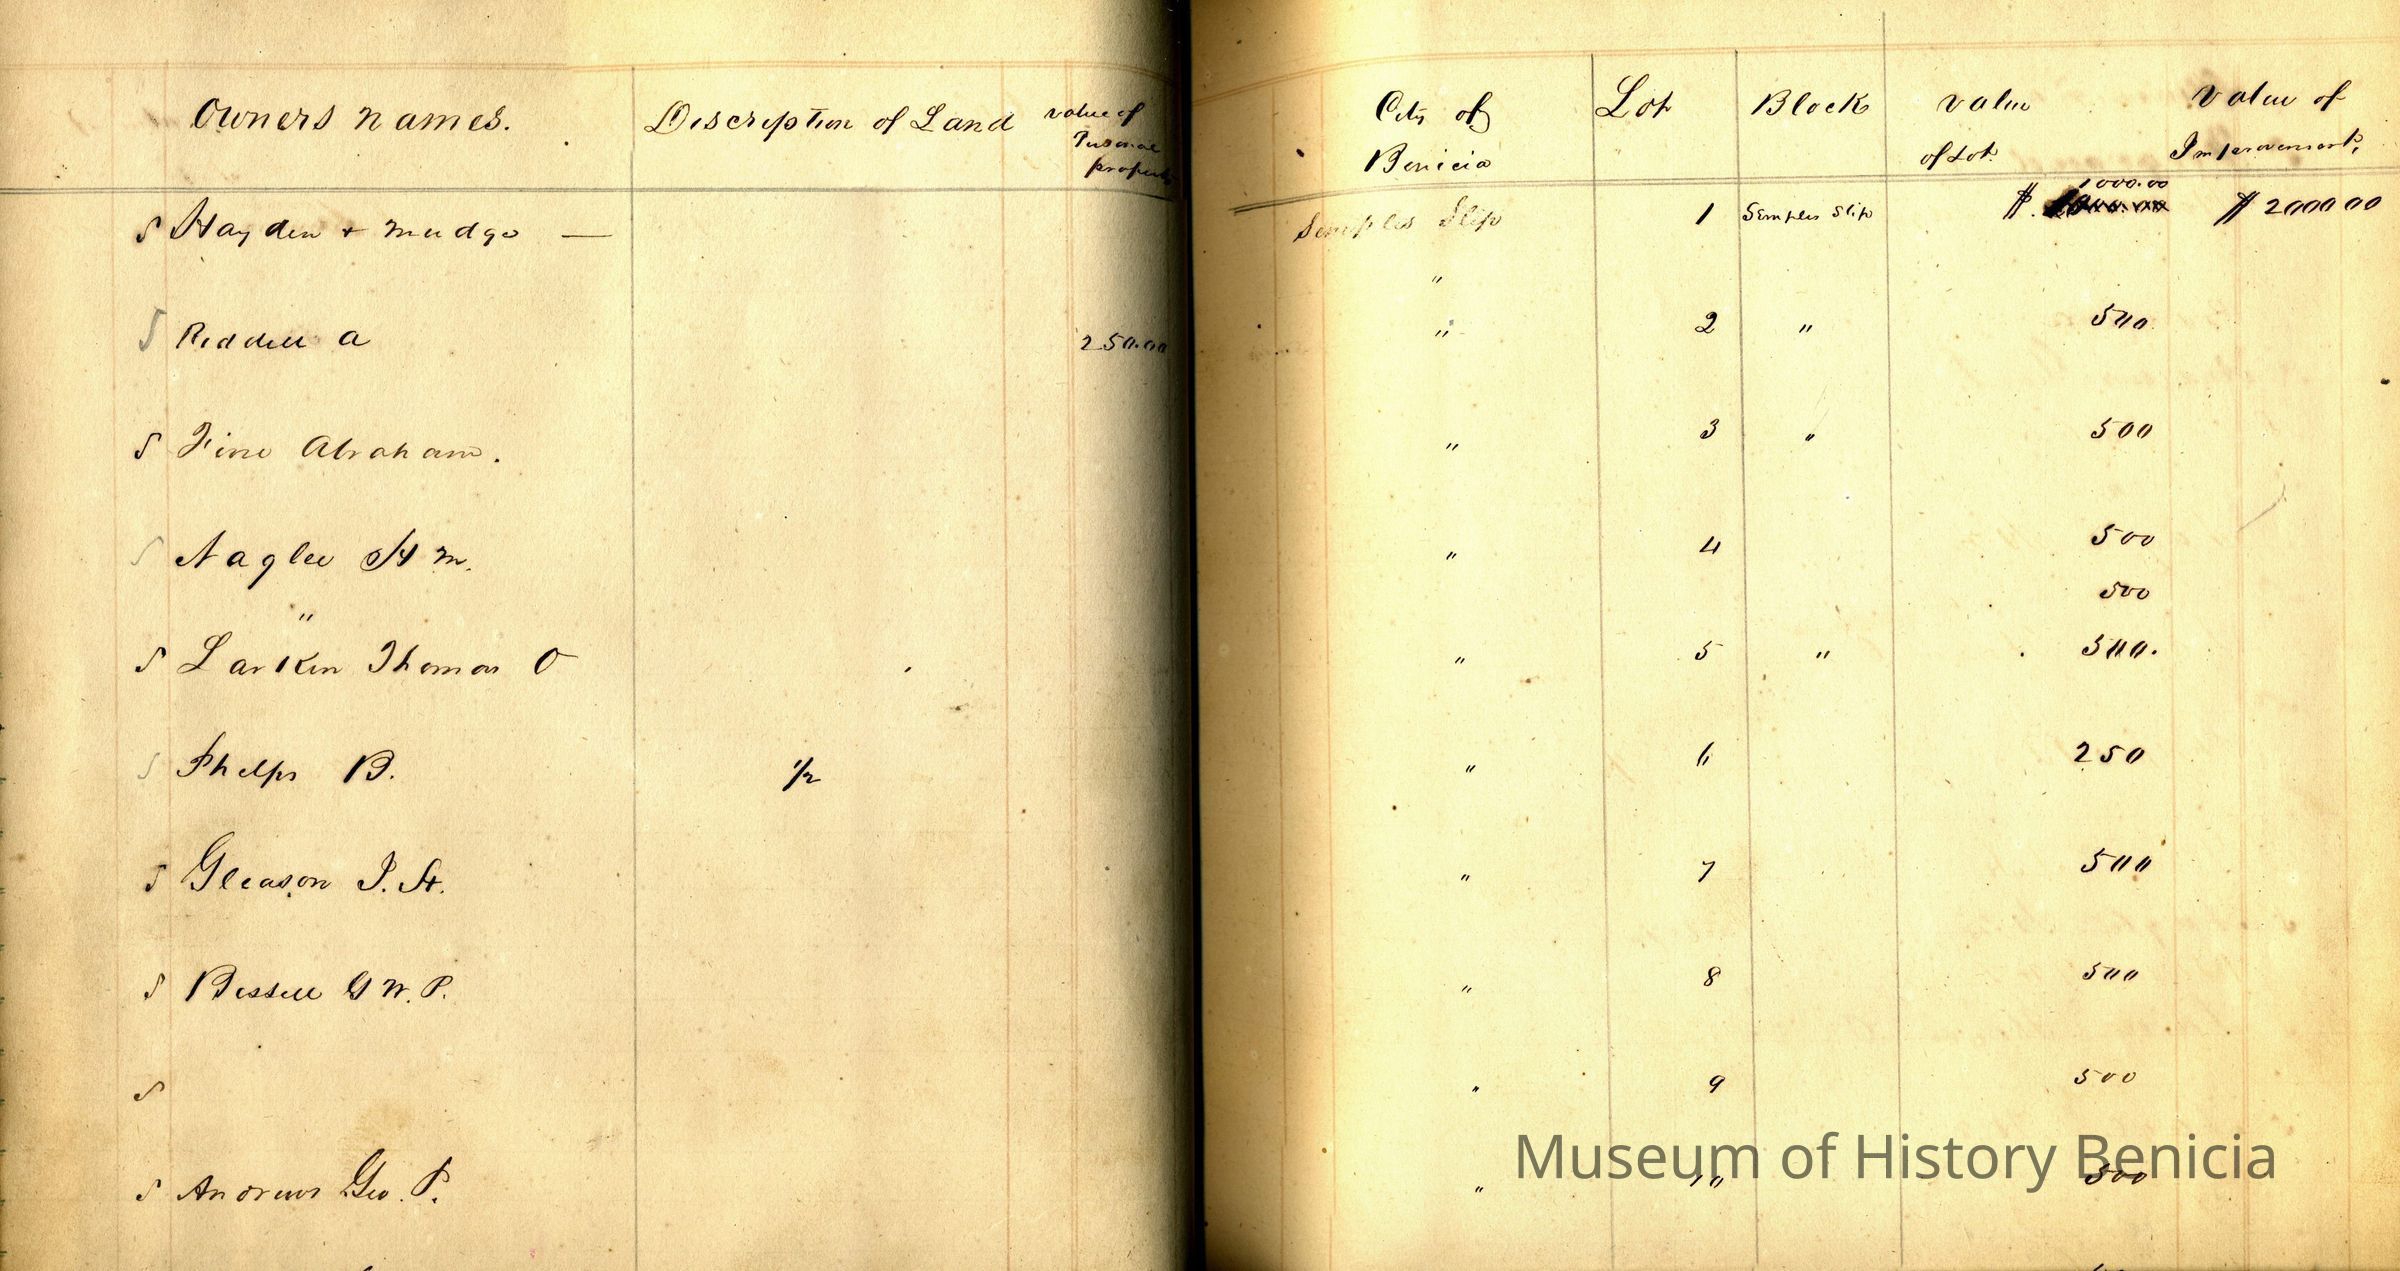 Owners Names. Description of Land value of Personal property City of Benicia Lot Block value of Lot Value of Improvements,
1000.00
S Hayden + Mudge — Semples Slip 1 Semples Slip $ $ 2000 00
"
S Riddell A 250.00 " 2 " 500
S Fine Abraham. " 3 " 500
S Naglee H M. " 4 500
" 500
S Larkin Thomas O " 5 " 500.
S Phelps B. 1/2 " 6 250
S Gleason J. H. " 7 500
S Bissell G W. P. " 8 500
S " 9 500
S Andrews Geo. P. " 10 500
Museum of History Benicia